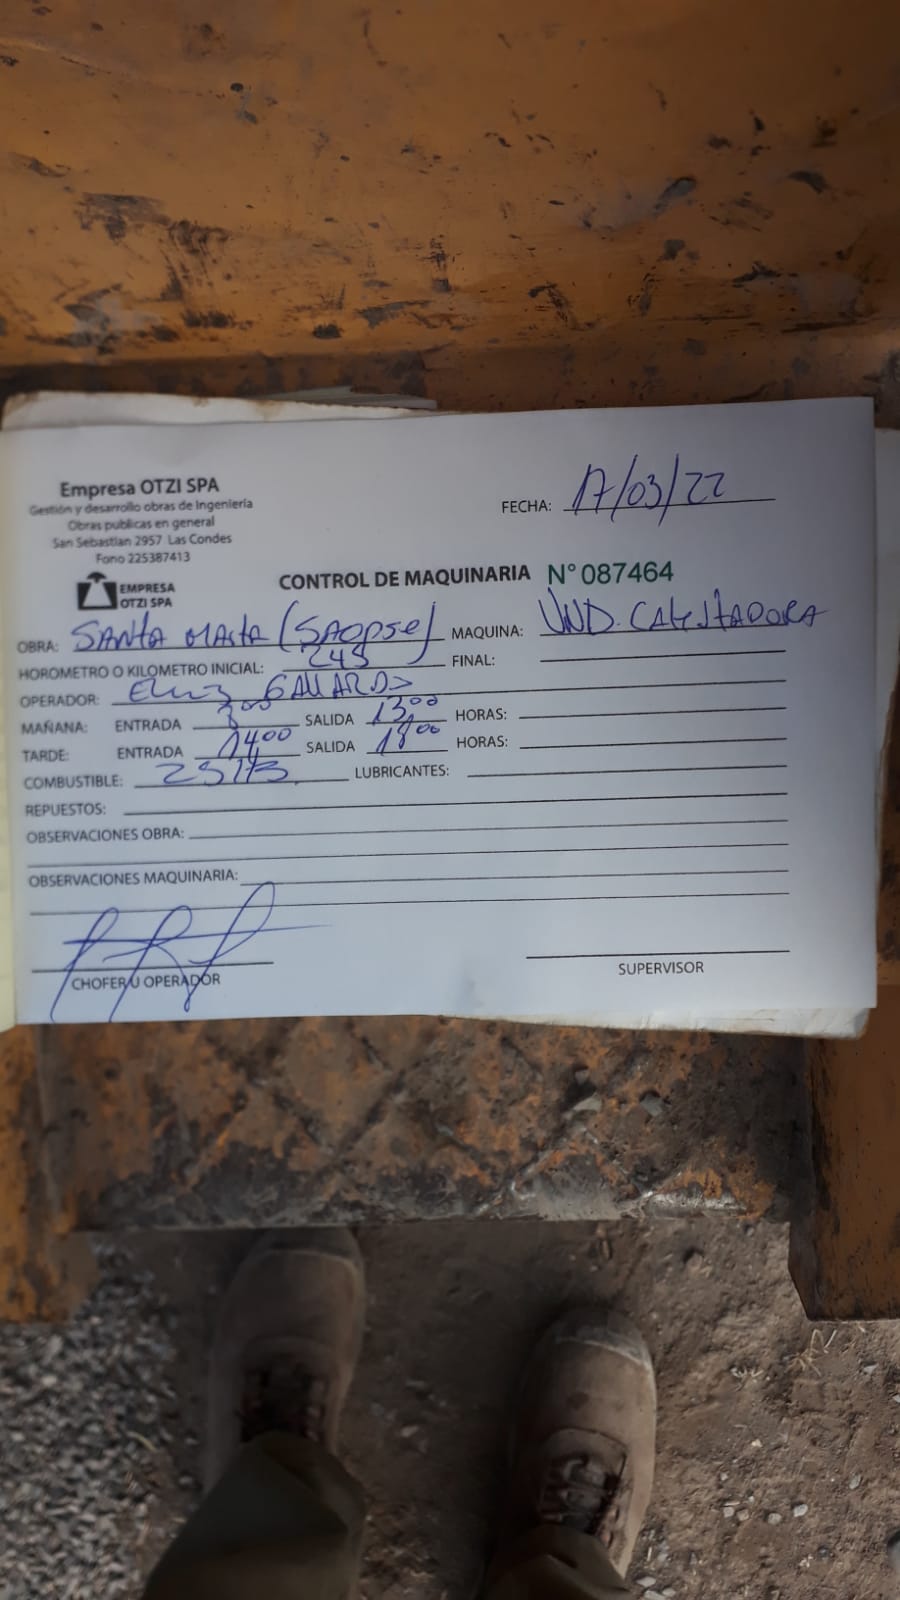 Empresa OTZI SPA
Gestión y desarrollo obras de Ingeniería
Obras publicas en general
San Sebastian 2957 Las Condes
Fono 225387413
EMPRESA
OTZI SPA
FECHA: 17/03/22
CONTROL DE MAQUINARIA N° 087464
OBRA: SANTA MARTA MAQUINA: UND.
HOROMETRO O KILOMETRO INICIAL: 245 FINAL:
OPERADOR: GALLARDO
MAÑANA: ENTRADA 8 00 SALIDA 13,00 HORAS:
TARDE: ENTRADA 14,00 SALIDA 18,00 HORAS:
COMBUSTIBLE: LUBRICANTES:
REPUESTOS:
OBSERVACIONES OBRA:
OBSERVACIONES MAQUINARIA:
CHOFER U OPERADOR
SUPERVISOR